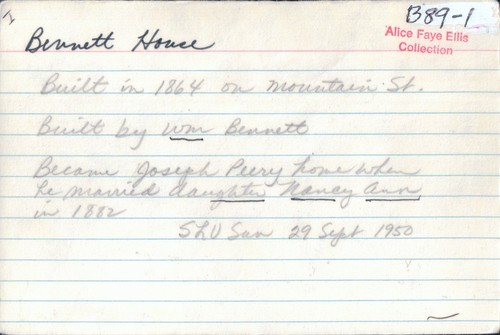 B89-1
Alice Faye Ellis
Collection
Bennett House
Built in 1864 on Mountain St.
Built by Wm Bennett
Became Joseph Peery home when
he married daughter Nancy Ann
in 1882
29 Sept 1950